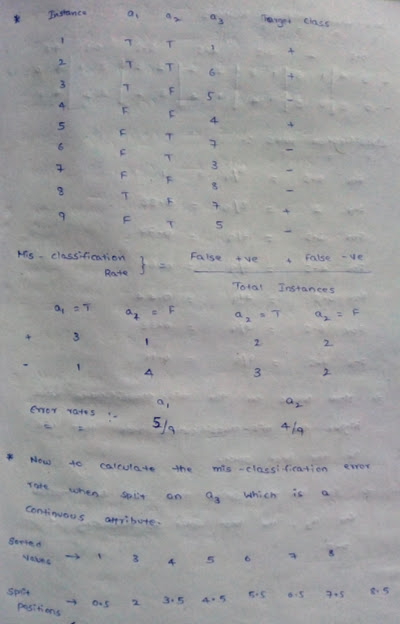 * Instance a₁ a₂ a₃ Target class
1 T T 1 +
2 T T 6 +
3 T F 5 -
4 F F 4 +
5 F T 7 -
6 F T 3 -
7 F F 8 -
8 T F 7 +
9 F T 5 -
Mis-classification Rate } = False +ve + False -ve
Total Instances
a₁ = T a₂ = F a₂ = T a₂ = F
+ 3 1 2 2
- 1 4 3 2
a₁ a₂
Error rates :- 5/9 4/9
* Now to calculate the mis-classification error
rate when split on a₃ which is a
continuous attribute.
Sorted values → 1 3 4 5 6 7 8
Split positions → 0.5 2 3.5 4.5 5.5 6.5 7.5 8.5